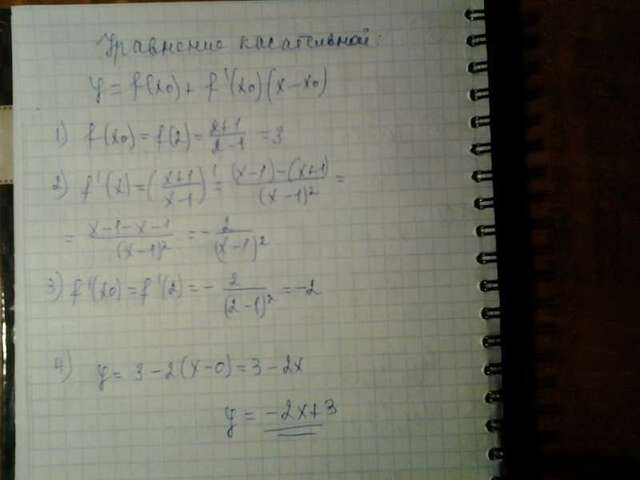 Уравнение касательной:
y = f(x0) + f'(x0)(x-x0)
1) f(x0) = f(2) = (2+1)/(2-1) = 3
2) f'(x) = ((x+1)/(x-1))' = ((x-1)-(x+1))/(x-1)² =
= (x-1-x-1)/(x-1)² = - 2/(x-1)²
3) f'(x0) = f'(2) = - 2/(2-1)² = -2
4) y = 3-2(x-0) = 3-2x
y = -2x+3